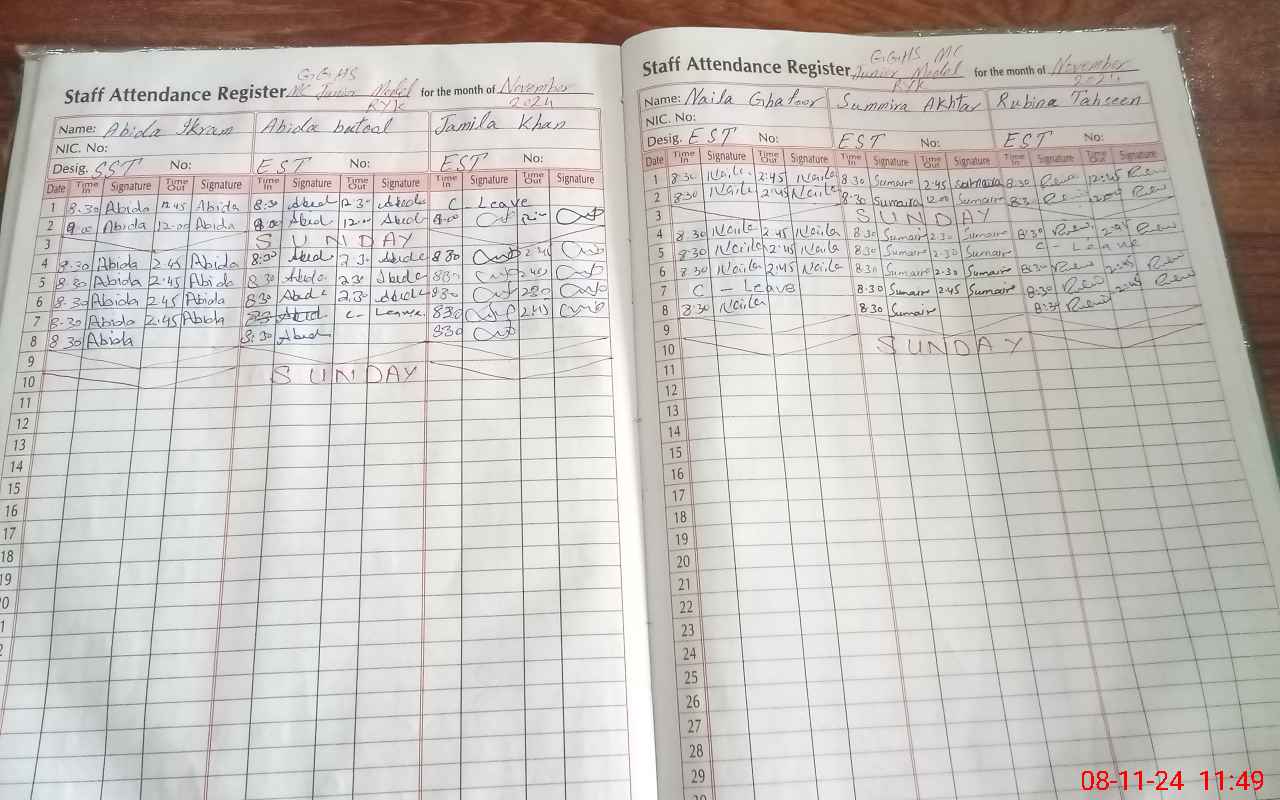 GGHS
Staff Attendance Register MC Junior Model for the month of November
RYK 2024
Name: Abida Ikram Abida batool Jamila Khan
NIC. No:
Desig. SST No: EST No: EST No:
Date Time In Signature Time Out Signature Time In Signature Time Out Signature Time In Signature Time Out Signature
1 8.30 Abida 12.45 Abida 8:30 Abid 12.30 C - Leave
2 9.00 Abida 12.00 Abida 9.00 Abid 12.00 9.00
3 SUNDAY
4 8.30 Abida 2.45 Abida 8:30 2.30 8.30 2.45
5 8.30 Abida 2.45 Abida 8.30 2.30 8.30 2.45
6 8.30 Abida 2.45 Abida 8.30 2.30 8.30 2.30
7 8.30 Abida 2.45 Abida C - Leave 8.30 2.45
8 8.30 Abida 8.30 8.30
9
10 SUNDAY
11
12
13
14
15
16
17
18
19
GGHS MC
Staff Attendance Register Junior Model for the month of November
RYK 2024
Name: Naila Ghafoor Summira Akhtar Rubina Tahseen
NIC. No:
Desig. EST No: EST No: EST No:
Date Time In Signature Time Out Signature Time In Signature Time Out Signature Time In Signature Time Out Signature
1 8.30 Naila 2.45 Naila 8.30 Sumaira 2.45 Sumaira 8.30 12.45
2 8.30 Naila 2.45 Naila 8.30 Sumaira 12.00 Sumaira 8.30 12.00
3 SUNDAY
4 8.30 Naila 2.45 Naila 8.30 Sumaira 2.30 Sumaira 8.30 2.45
5 8.30 Naila 2.45 Naila 8.30 Sumaira 2.30 Sumaira C - Leave
6 8.30 Naila 2.45 Naila 8.30 Sumaira 2.30 Sumaira 8.30 2.45
7 C - Leave 8.30 Sumaira 2.45 Sumaira 8.30 2.45
8 8.30 Naila 8.30 Sumaira 8.30
9
10 SUNDAY
11
12
13
14
15
16
17
18
19
20
21
22
23
24
25
26
27
28
29
08-11-24 11:49